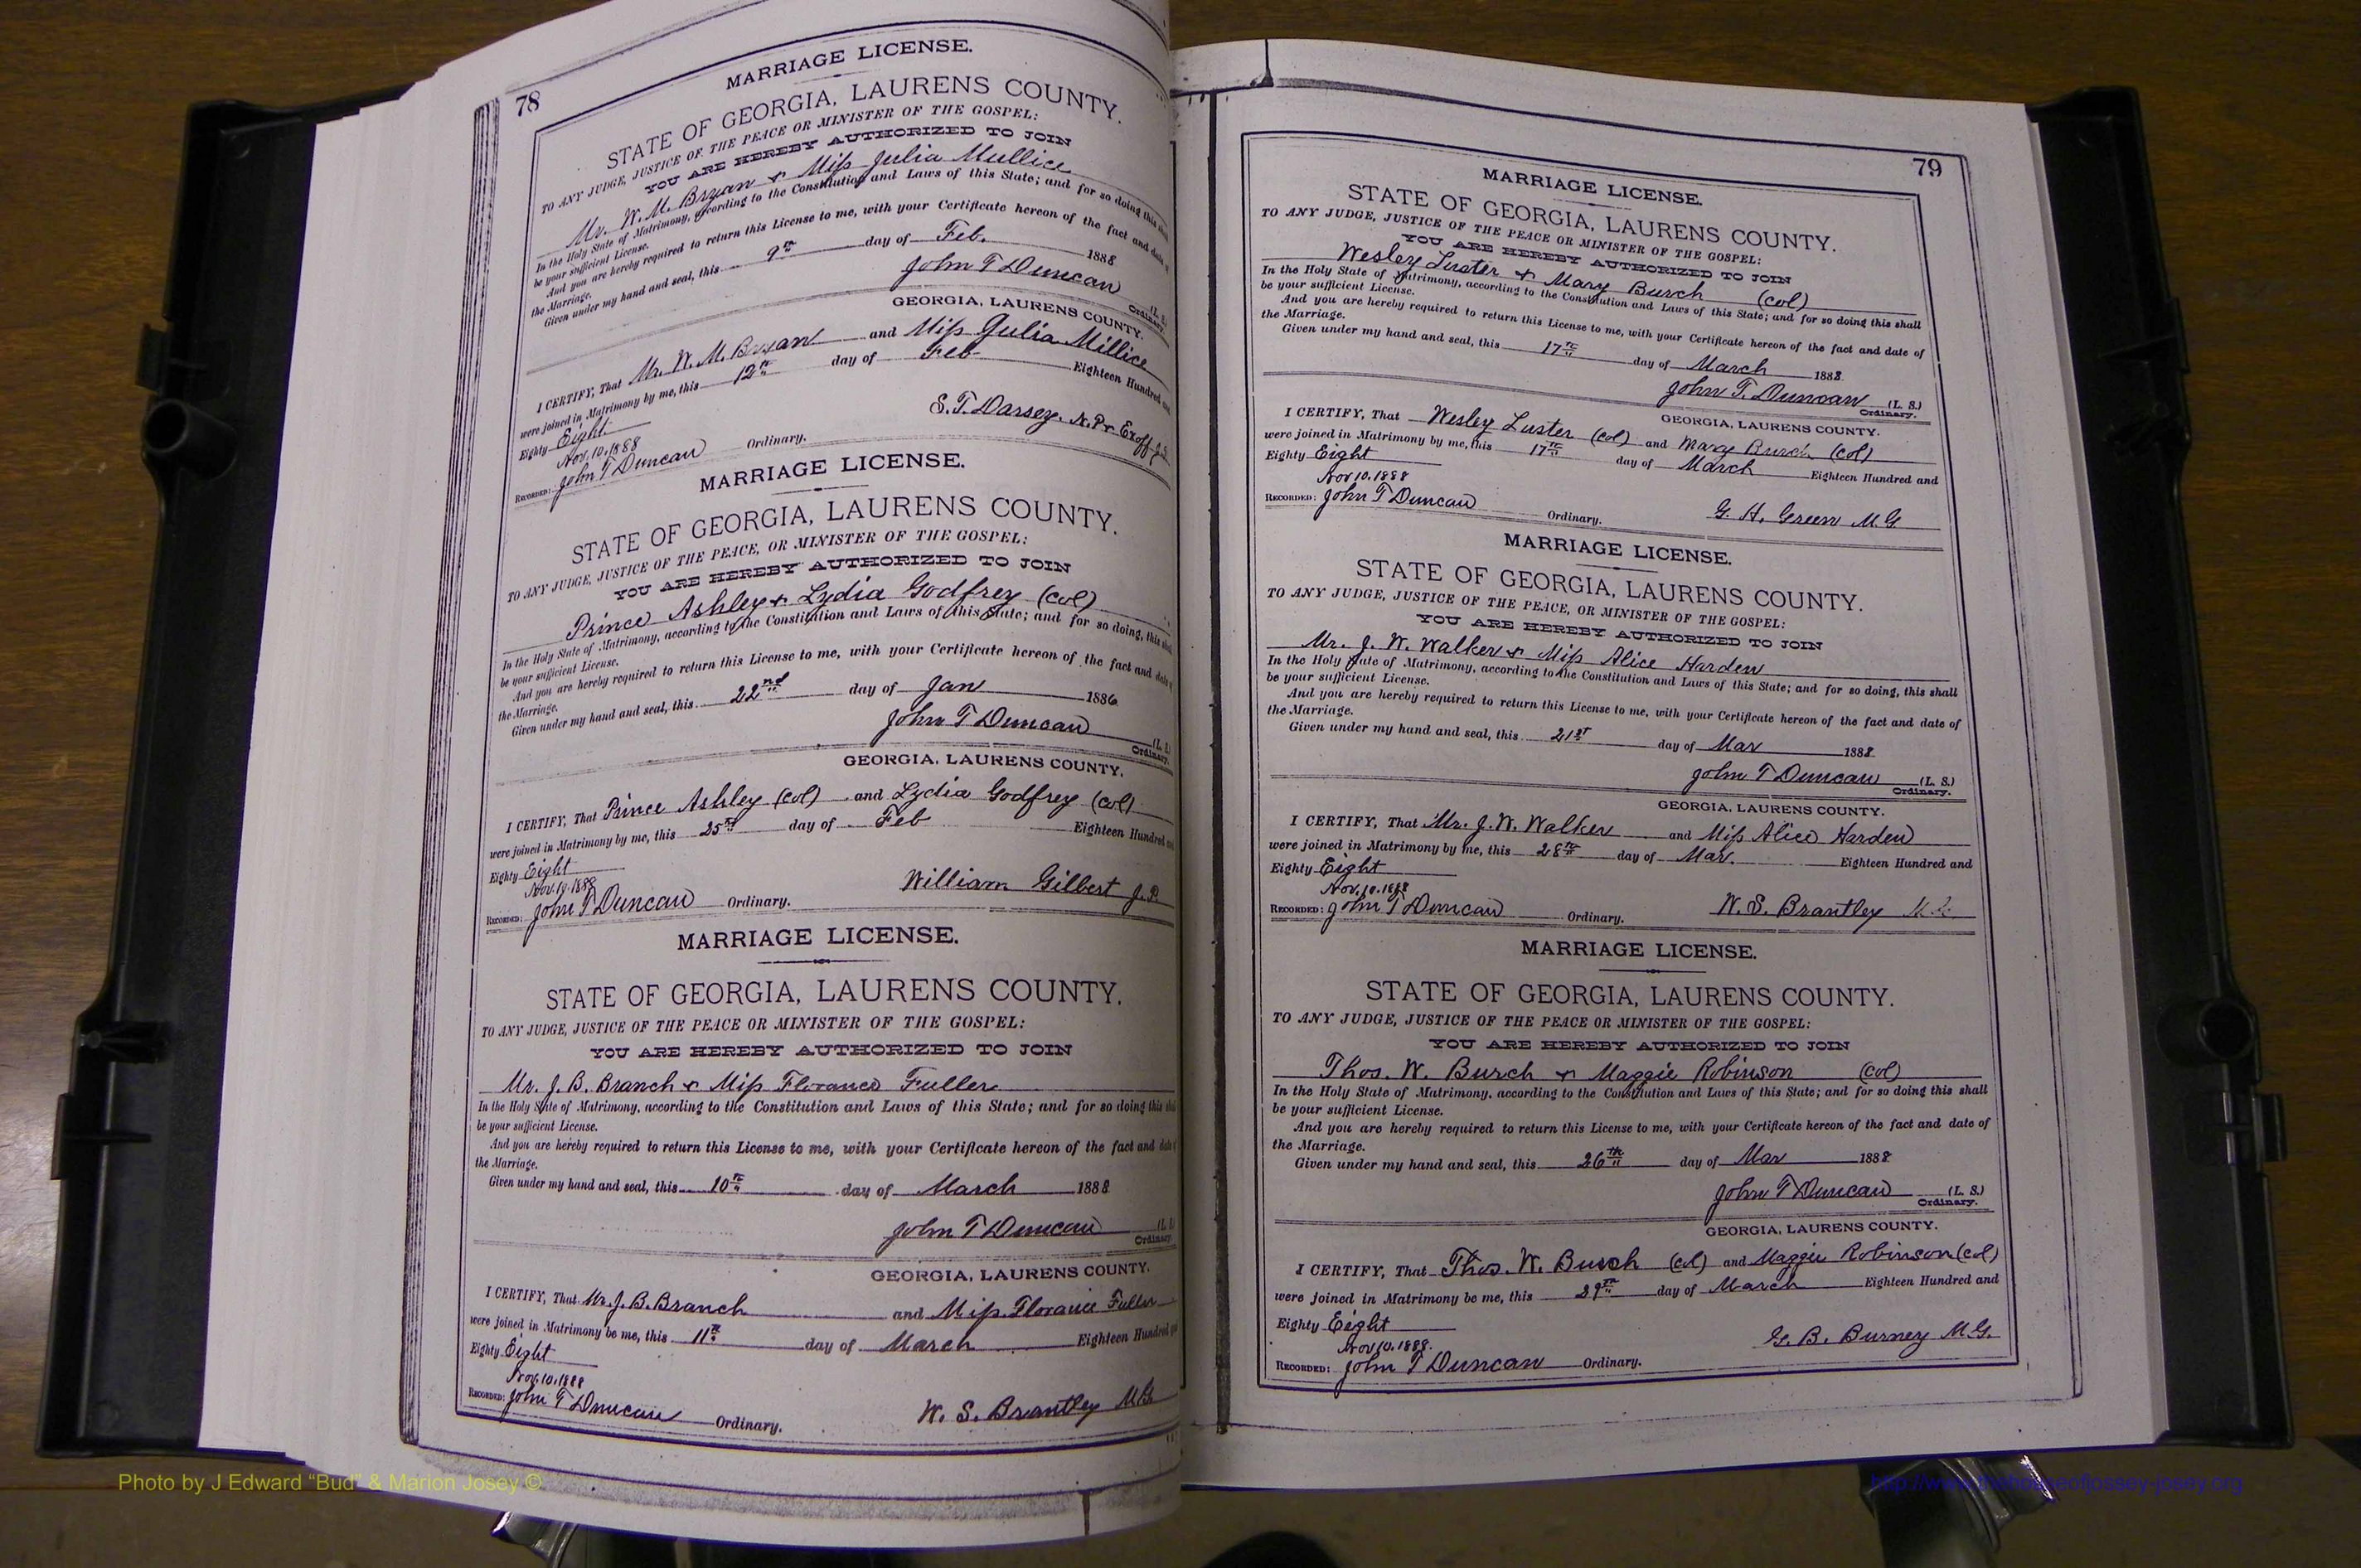 78
MARRIAGE LICENSE.
STATE OF GEORGIA, LAURENS COUNTY.
TO ANY JUDGE, JUSTICE OF THE PEACE OR MINISTER OF THE GOSPEL:
YOU ARE HEREBY AUTHORIZED TO JOIN
Mr. W. M. Bryan & Miss Julia Mullice
In the Holy State of Matrimony, according to the Constitution and Laws of this State; and for so doing this shall
be your sufficient License.
And you are hereby required to return this License to me, with your Certificate hereon of the fact and date of
the Marriage.
Given under my hand and seal, this 9th day of Feb. 1888
John T Duncan (L. S.)
Ordinary.
GEORGIA, LAURENS COUNTY.
I CERTIFY, That Mr. W. M. Bryan and Miss Julia Millice
were joined in Matrimony by me, this 12th day of Feb Eighteen Hundred and
Eighty Eight
Nov. 10, 1888 S. T. Dassey. N. P. & Exoff J.P.
RECORDED: John T Duncan Ordinary.
MARRIAGE LICENSE.
STATE OF GEORGIA, LAURENS COUNTY.
TO ANY JUDGE, JUSTICE OF THE PEACE, OR MINISTER OF THE GOSPEL:
YOU ARE HEREBY AUTHORIZED TO JOIN
Prince Ashley & Lydia Godfrey (Col)
In the Holy State of Matrimony, according to the Constitution and Laws of this State; and for so doing, this shall
be your sufficient License.
And you are hereby required to return this License to me, with your Certificate hereon of the fact and date of
the Marriage.
Given under my hand and seal, this 22nd day of Jan 1886
John T Duncan (L. S.)
Ordinary.
GEORGIA, LAURENS COUNTY.
I CERTIFY, That Prince Ashley (Col) and Lydia Godfrey (Col)
were joined in Matrimony by me, this 25th day of Feb Eighteen Hundred and
Eighty Eight
Nov. 10, 1888 William Gilbert J. P.
RECORDED: John T Duncan Ordinary.
MARRIAGE LICENSE.
STATE OF GEORGIA, LAURENS COUNTY.
TO ANY JUDGE, JUSTICE OF THE PEACE OR MINISTER OF THE GOSPEL:
YOU ARE HEREBY AUTHORIZED TO JOIN
Mr. J. B. Branch & Miss Florance Fuller
In the Holy State of Matrimony, according to the Constitution and Laws of this State; and for so doing this shall
be your sufficient License.
And you are hereby required to return this License to me, with your Certificate hereon of the fact and date of
the Marriage.
Given under my hand and seal, this 10th day of March 1888
John T Duncan (L. S.)
Ordinary.
GEORGIA, LAURENS COUNTY.
I CERTIFY, That Mr. J. B. Branch and Miss. Florance Fuller
were joined in Matrimony be me, this 11th day of March Eighteen Hundred and
Eighty Eight
Nov. 10, 1888
RECORDED: John T Duncan Ordinary. W. S. Brantley M.G.
79
MARRIAGE LICENSE.
STATE OF GEORGIA, LAURENS COUNTY.
TO ANY JUDGE, JUSTICE OF THE PEACE OR MINISTER OF THE GOSPEL:
YOU ARE HEREBY AUTHORIZED TO JOIN
Wesley Luster & Mary Burch (Col)
In the Holy State of Matrimony, according to the Constitution and Laws of this State; and for so doing this shall
be your sufficient License.
And you are hereby required to return this License to me, with your Certificate hereon of the fact and date of
the Marriage.
Given under my hand and seal, this 17th day of March 1888
John T. Duncan (L. S.)
Ordinary.
GEORGIA, LAURENS COUNTY.
I CERTIFY, That Wesley Luster (Col) and Mary Burch (Col)
were joined in Matrimony by me, this 17th day of March Eighteen Hundred and
Eighty Eight
Nov 10, 1888
RECORDED: John T Duncan Ordinary. G. H. Green M. G
MARRIAGE LICENSE.
STATE OF GEORGIA, LAURENS COUNTY.
TO ANY JUDGE, JUSTICE OF THE PEACE, OR MINISTER OF THE GOSPEL:
YOU ARE HEREBY AUTHORIZED TO JOIN
Mr. J. W. Walker & Miss Alice Harden
In the Holy State of Matrimony, according to the Constitution and Laws of this State; and for so doing, this shall
be your sufficient License.
And you are hereby required to return this License to me, with your Certificate hereon of the fact and date of
the Marriage.
Given under my hand and seal, this 21st day of Mar 1888
John T Duncan (L. S.)
Ordinary.
GEORGIA, LAURENS COUNTY.
I CERTIFY, That Mr. J. W. Walker and Miss Alice Harden
were joined in Matrimony by me, this 28th day of Mar. Eighteen Hundred and
Eighty Eight
Nov, 10. 1888
RECORDED: John T Duncan Ordinary. W. S. Brantley
MARRIAGE LICENSE.
STATE OF GEORGIA, LAURENS COUNTY.
TO ANY JUDGE, JUSTICE OF THE PEACE OR MINISTER OF THE GOSPEL:
YOU ARE HEREBY AUTHORIZED TO JOIN
Thos. W. Burch & Maggie Robinson (Col)
In the Holy State of Matrimony, according to the Constitution and Laws of this State; and for so doing this shall
be your sufficient License.
And you are hereby required to return this License to me, with your Certificate hereon of the fact and date of
the Marriage.
Given under my hand and seal, this 26th day of Mar 1888
John T Duncan (L. S.)
Ordinary.
GEORGIA, LAURENS COUNTY.
I CERTIFY, That Thos. W. Burch (Col) and Maggie Robinson (Col)
were joined in Matrimony be me, this 29th day of March Eighteen Hundred and
Eighty Eight
Nov 10, 1888. G. B. Burney M.G.
RECORDED: John T Duncan Ordinary.
Photo by J Edward “Bud” & Marion Josey ©
http://www.thehouseofjossey-josey.org